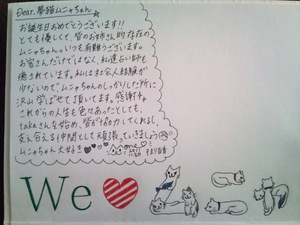 Dear. 夢猫ムニャちゃん
お誕生日おめでとうございます!!
とても優しくて、皆のお姉さん的存在の
ムニャちゃん。いつも有難うございます。
お客さんだけではなく、私達占い師も
癒されています。私は社会人経験が
少ないので、ムニャちゃんのしっかりした所に
沢山学ばせて頂いてます。感謝♥
これからの人生も色々あったとしても、
takaさんを始め、皆が協力してくれるし、
支え合える仲間として頑張っていきましょう
ムニャちゃん大好き♥♥♥
We ♥